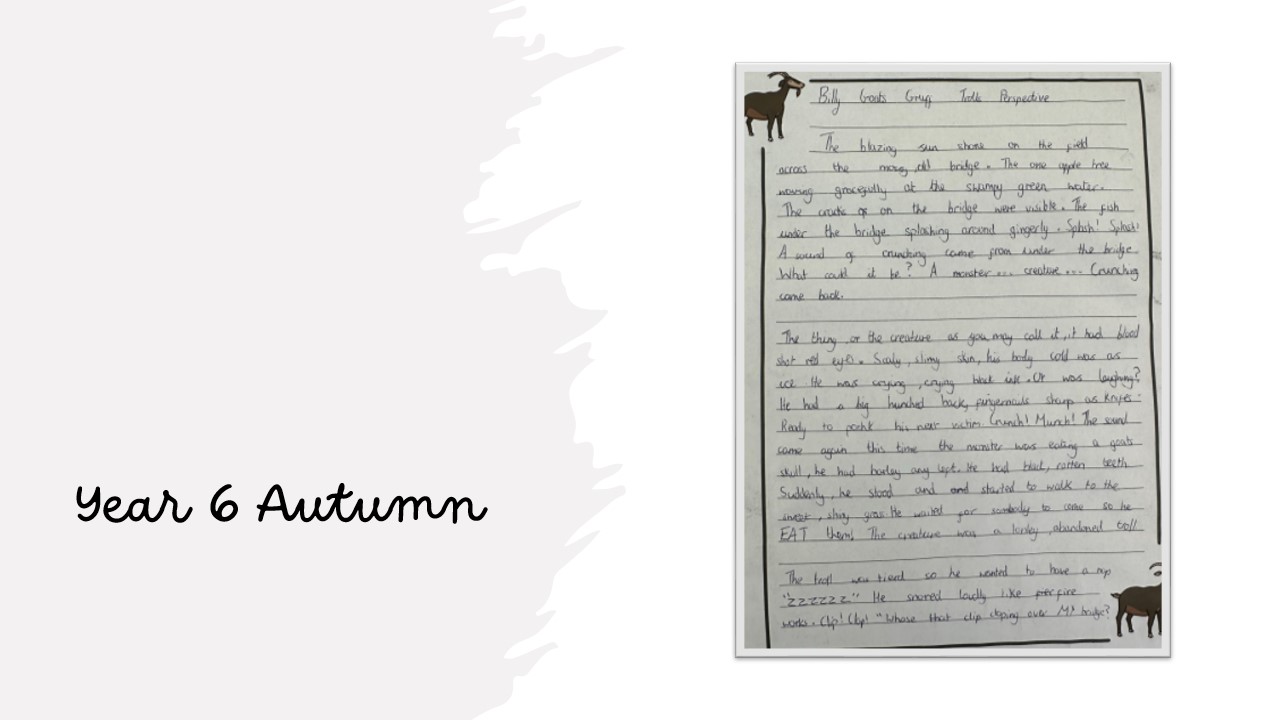 Year 6 Autumn
Billy Goats Gruff Trolls Perspective
The blazing sun shone on the field
across the mossy, old bridge. The one apple tree
waving gracefully at the swampy green water.
The cracks of on the bridge were visible. The fish
under the bridge splashing around gingerly. Splash! Splash!
A sound of crunching came from under the bridge.
What could it be? A monster... creature... Crunching
came back.
The thing, or the creature as you may call it, it had blood
shot red eyes. Scaly, slimy skin, his body cold was as
ice He was crying, crying black ink. Or was laughing?
He had a big hunched back, fingernails sharp as knifes.
Ready to his next victim. Crunch! Munch! The sound
came again this time the monster was eating a goats
skull, he had barley any left. He had black, rotten teeth
Suddenly, he stood and and started to walk to the
shiny gras. He waited for sombody to come so he
EAT them! The creature was a lonley, abandoned
The was tierd so he wanted to have a nap
"zzzzzz" He snored loudly like fire
works. Clip! Clop! "Whose that clip cloping over MY bridge?